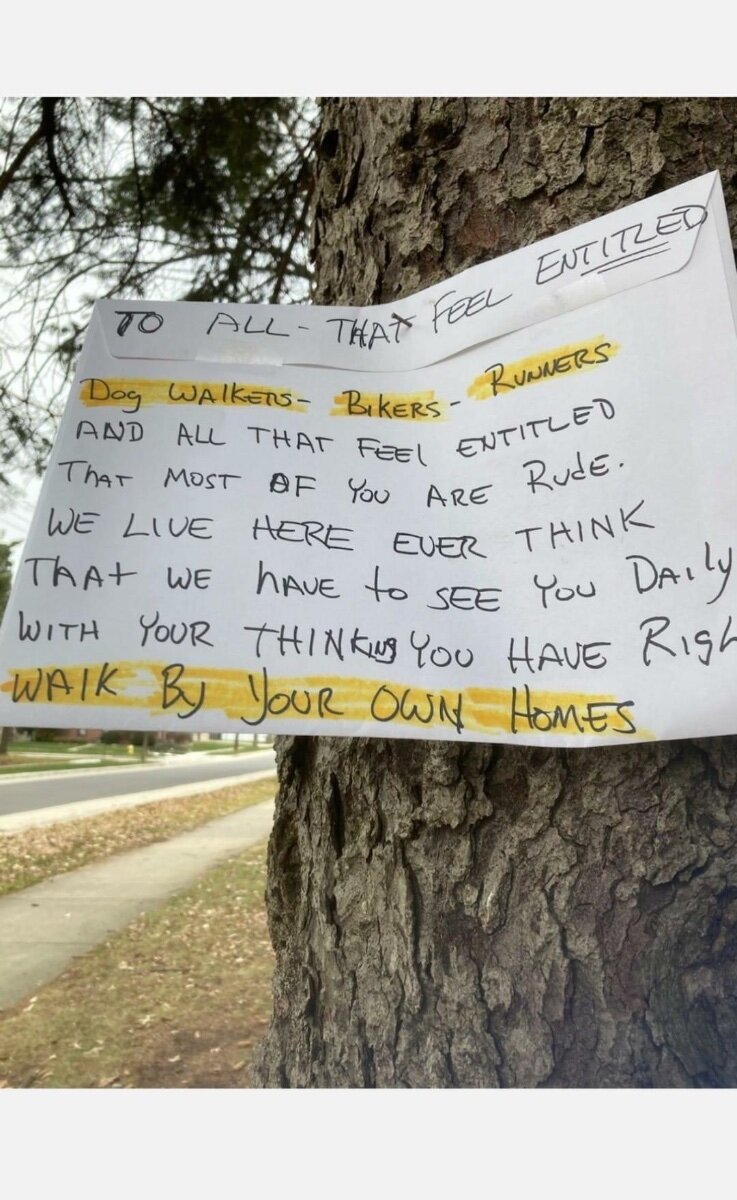 TO ALL - THAT FEEL ENTITLED
Dog WALKERS - BIKERS - RUNNERS
AND ALL THAT FEEL ENTITLED
THAT MOST OF YOU ARE RUDE.
WE LIVE HERE EVER THINK
THAT WE HAVE to SEE YOU DAILY
WITH YOUR THINKING YOU HAVE RIGH
WALK By YOUR OWN HOMES